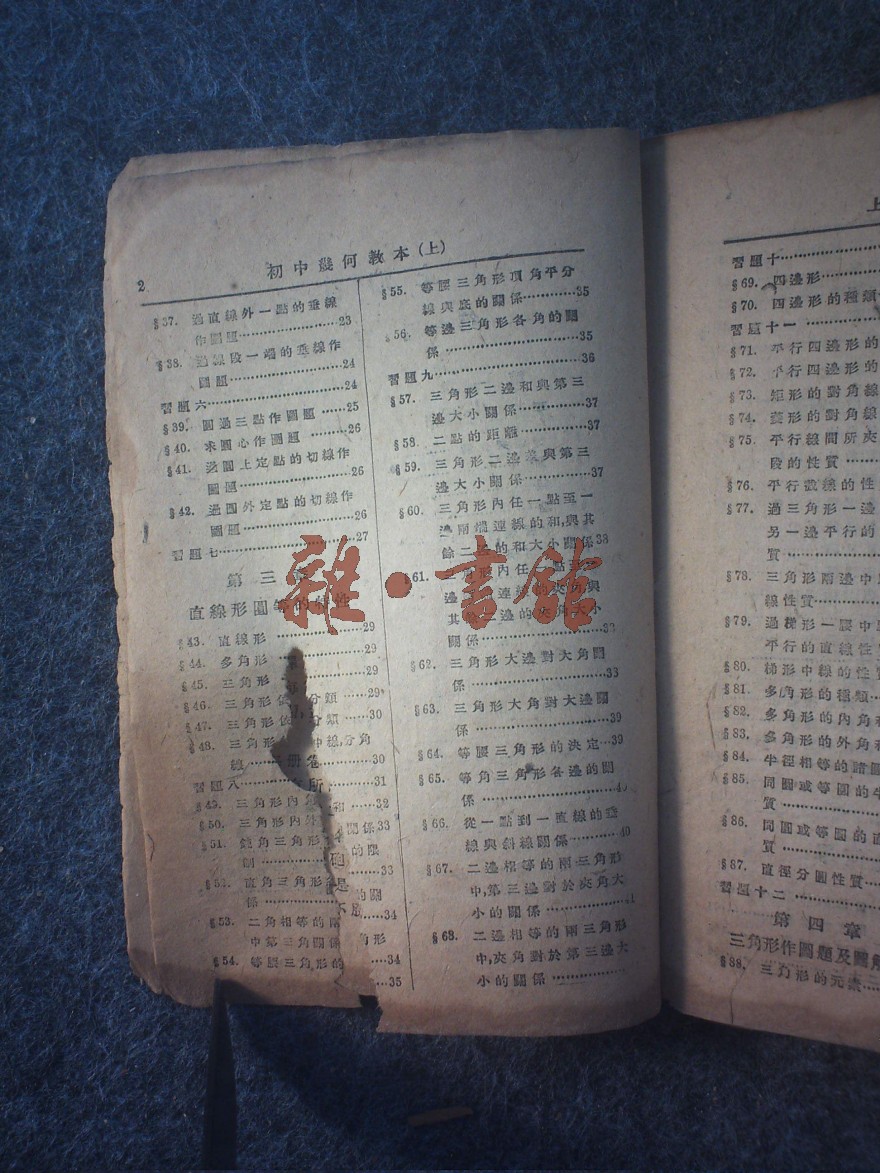 2
初中幾何教本(上)
§37. 過直線外一點的垂線
作圖題……23
§38. 過線段一端的垂線作
圖題……24
習題六……24
§39. 圓過三點作圖題……25
§40. 求圓心作圖題……26
§41. 過圓上定點的切線作
圖題……26
§42. 過圓外定點的切線作
圖題……26
習題七……27
第三
直線形圓等的特性
§43. 直線形……29
§44. 多角形……29
§45. 三角形……29
§46. 三角形 分類……29
§47. 三角形 分類……30
§48. 三角形 中線,分角
線……30
習題八……31
§49. 三角形內……32
§50. 三角形內外 關係33
§51. 三角形 的
……33
§52. 直角三角形 的關
係……34
§53. 二角相等的兩 角形
中第三角關係……34
§54. 等腰三角形的……35
§55. 等腰三角形頂角平分
線與底的關係……35
§56. 等邊三角形各角的關
係……35
習題九……36
§57. 三角形二邊和與第三
邊大小關係……37
§58. 二點的距離……37
§59. 三角形二邊差與第三
邊大小關係……37
§60. 三角形內任一點至一
邊兩端連線的和,與其
餘二邊的和大小關係38
§61. 三角形內任一點至一
邊 連線的夾角,與
其 二邊的夾角大小
關係……
§62. 三角形大邊對大角關
係……
§63. 三角形大角對大邊關
係……39
§64. 等腰三角形的決定…39
§65. 等角三角形各邊的關
係……40
§66. 從一點到一直線的垂
線與斜線關係……40
§67. 二邊相等的兩三角形
中,第三邊對於夾角大
小的關係……
§68. 二邊相等的兩三角形
中,夾角對於第三邊大
小的關係……
雜·書館
上
習題十……
§69. 四邊形……
§70. 四邊形的種類
習題十一……
§71. 平行四邊形的
§72. 平行四邊形的
§73. 矩形的對角線
§74. 菱形的對角線
§75. 平行線間所夾
段的性質……
§76. 平行截線的性
§77. 過三角形一邊
另一邊平行的
質……
§78. 三角形兩邊中
線性質……
§79. 過梯形一腰中
平行的直線性
§80. 梯形中線的性
§81. 多角形的種類
§82. 多角形的內角
§83. 多角形的外角
§84. 半徑相等的諸圓
§85. 同圓或等圓的
質……
§86. 同圓或等圓的直
質……
§87. 直徑分圓性質……
習題十二……
第四章
三角形作圖題及圖解
§88. 三角形的元素……